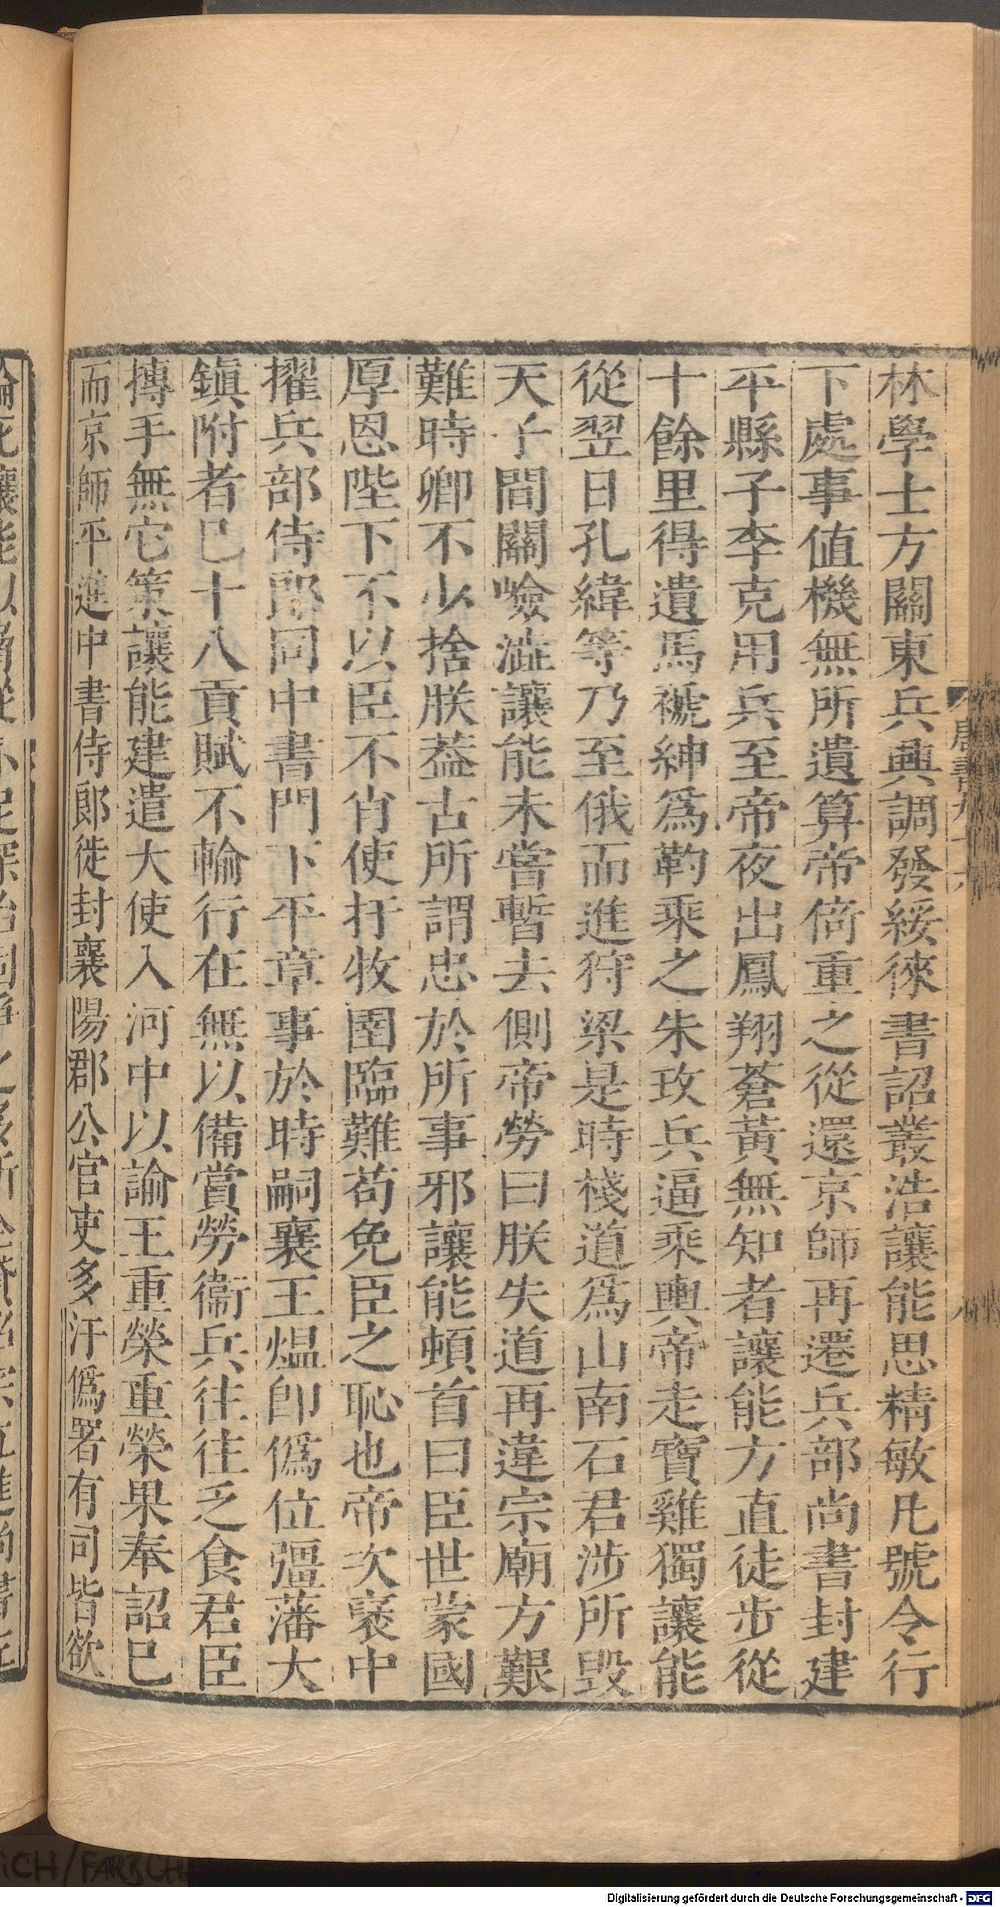 林學士方關東兵興調發綏徠書詔叢浩讓能思精敏凡號令行
下處事值機無所遺算帝倚重之從還京師再遷兵部尚書封建
平縣子李克用兵至帝夜出鳳翔蒼黃無知者讓能方直徒步從
十餘里得遺馬褫紳爲靮乘之朱玫兵逼乘輿帝走寶雞獨讓能
從翌日孔緯等乃至俄而進狩梁是時棧道爲山南石君涉所毀
天子間關嶮澁讓能未嘗暫去側帝勞曰朕失道再違宗廟方艱
難時卿不少捨朕葢古所謂忠於所事邪讓能頓首曰臣世蒙國
厚恩陛下不以臣不肖使扞牧圉臨難苟免臣之恥也帝次襃中
擢兵部侍郎同中書門下平章事於時嗣襄王熅卽僞位彊藩大
鎮附者已十八貢賦不輸行在無以備賞勞衞兵往往乏食君臣
摶手無它策讓能建遣大使入河中以諭王重榮重榮果奉詔已
而京師平進中書侍郞徙封襄陽郡公官吏多汙僞署有司皆欲
Digitalisierung gefördert durch die Deutsche Forschungsgemeinschaft - DFG